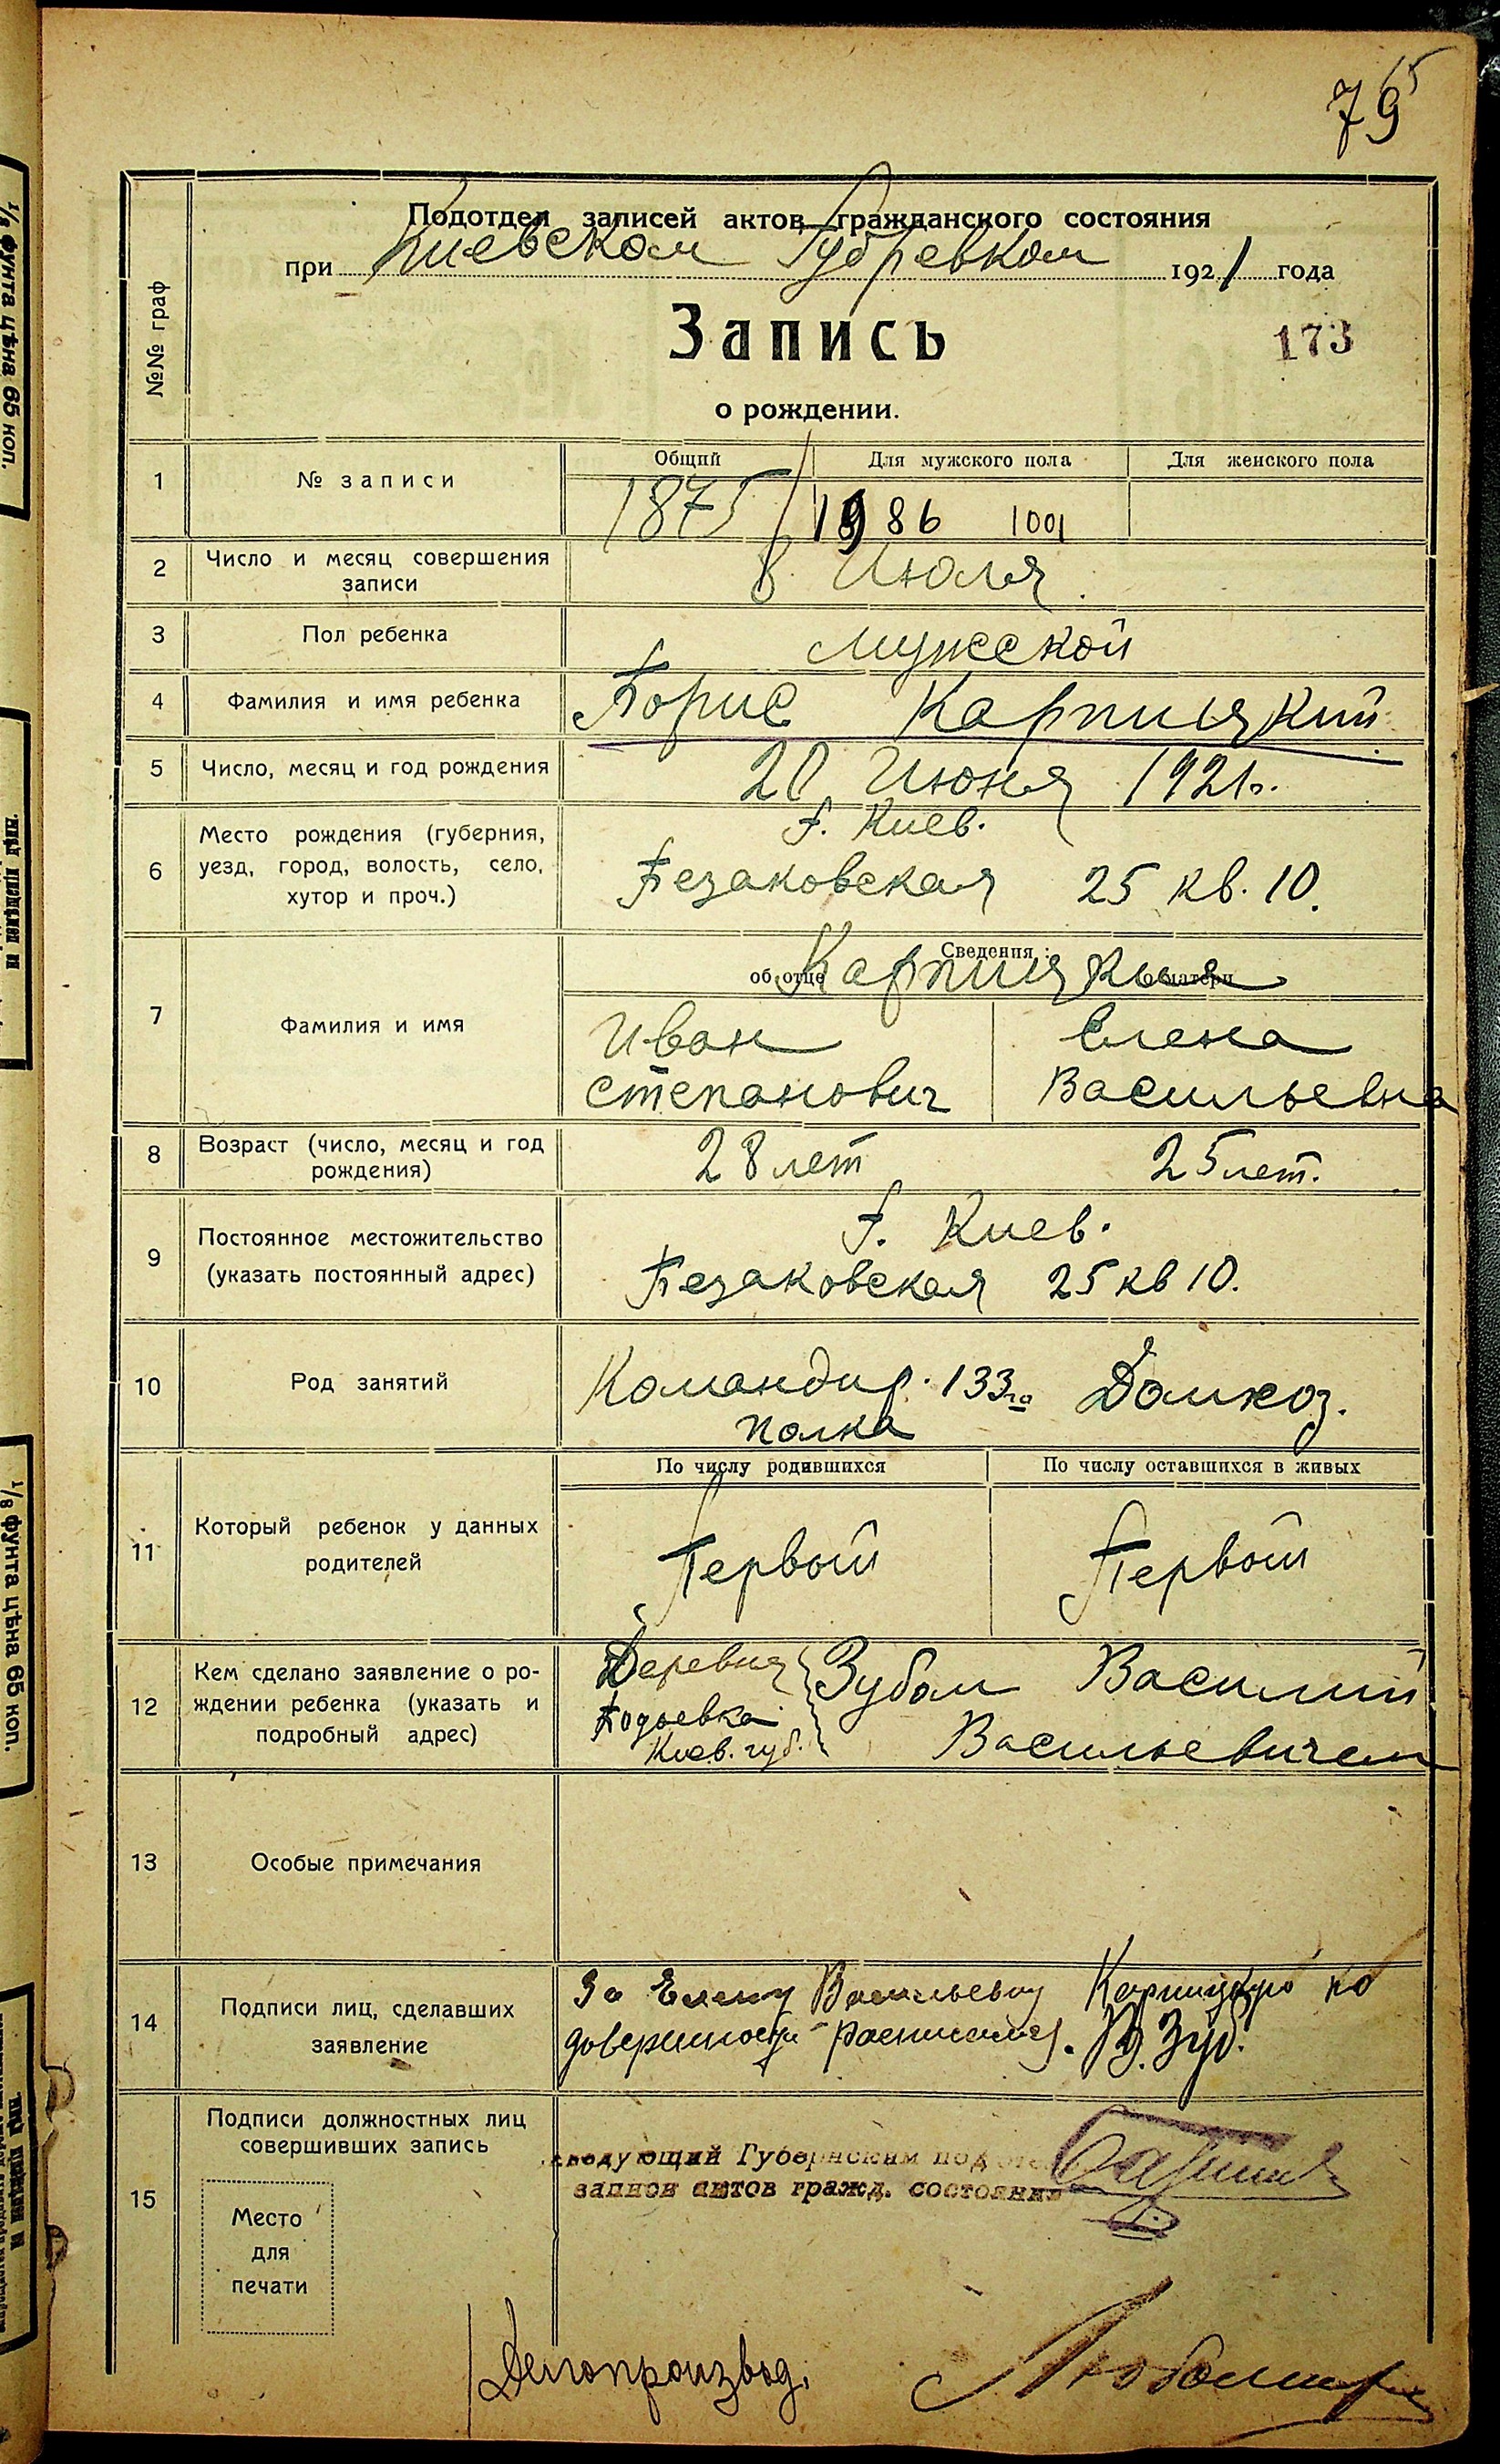 79
Подотдел записей актов гражданского состояния
при Киевском Губревком 1921 года
№№ граф
Запись
173
о рождении.
1 № записи
Общий Для мужского пола Для женского пола
1875 1986 1001
2 Число и месяц совершения записи
8 Июля
3 Пол ребенка
мужской
4 Фамилия и имя ребенка
Борис Карпицкий
5 Число, месяц и год рождения
20 Июня 1921г.
6 Место рождения (губерния,
уезд, город, волость, село,
хутор и проч.)
г. Киев.
Безаковская 25 кв. 10.
7 Фамилия и имя
Сведения:
об отце о матери
Карпицкия
Иван Елена
Степанович Васильевна
8 Возраст (число, месяц и год
рождения)
28 лет 25 лет.
9 Постоянное местожительство
(указать постоянный адрес)
г. Киев.
Безаковская 25 кв 10.
10 Род занятий
Командир. 133го Домхоз.
полка
11 Который ребенок у данных
родителей
По числу родившихся По числу оставшихся в живых
Первый Первый
12 Кем сделано заявление о ро-
ждении ребенка (указать и
подробный адрес)
Деревня Зубом Василий
Киев. губ. Васильевичем
13 Особые примечания
14 Подписи лиц, сделавших
заявление
За Елену Васильевну Карпицкую по
доверенности расписался. В. Зуб.
15 Подписи должностных лиц
совершивших запись
Место
для
печати
аведующий Губернским подотде
записи актов гражд. состояния
Делопроизвод.
1/8 фунта цѣна 65 коп.
1/8 фунта цѣна 65 коп.